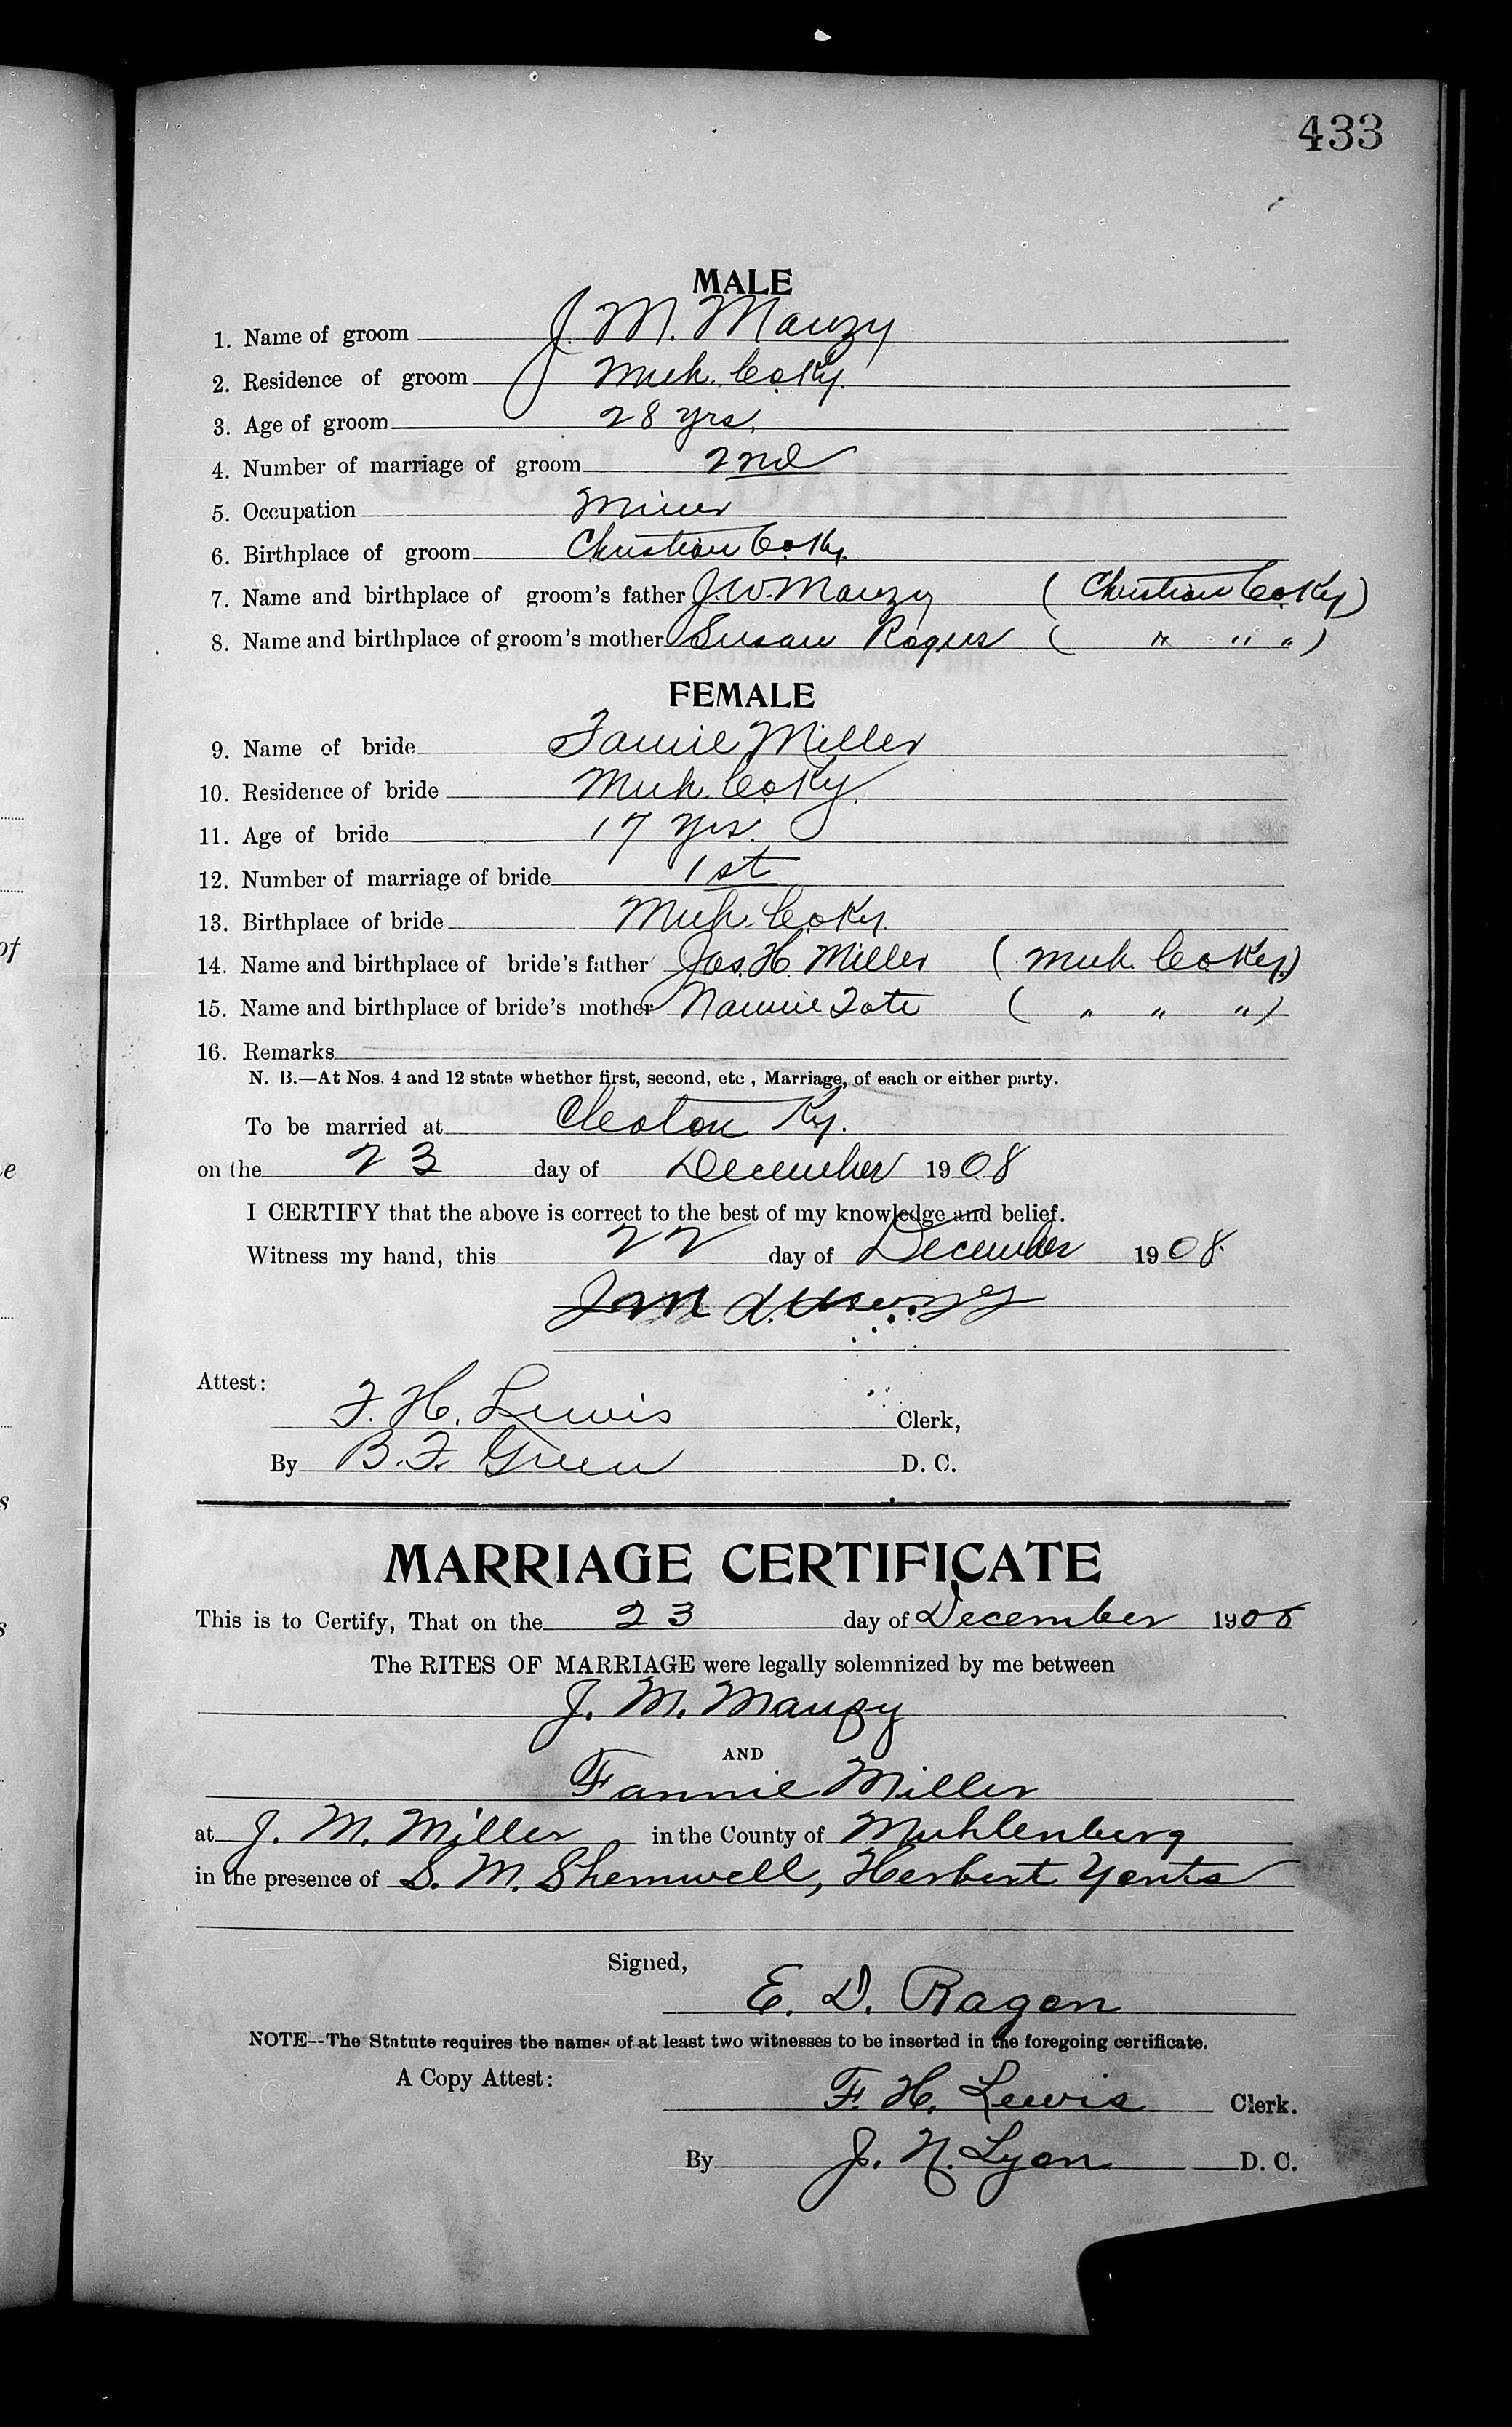 433
MALE
1. Name of groom J. M. Mauzy
2. Residence of groom Muh. Co Ky.
3. Age of groom 28 yrs.
4. Number of marriage of groom 2nd
5. Occupation Miner
6. Birthplace of groom Christian Co. Ky.
7. Name and birthplace of groom's father J. W. Mauzy ( Christian Co. Ky )
8. Name and birthplace of groom's mother Susan Rogers ( " " " )
FEMALE
9. Name of bride Fannie Miller
10. Residence of bride Muh. Co. Ky.
11. Age of bride 17 yrs.
12. Number of marriage of bride 1st
13. Birthplace of bride Muh. Co. Ky.
14. Name and birthplace of bride's father Jas. H. Miller ( Muh. Co Ky. )
15. Name and birthplace of bride's mother Nannie Tate ( " " " )
16. Remarks
N. B.—At Nos. 4 and 12 state whether first, second, etc , Marriage, of each or either party.
To be married at Cleaton Ky.
on the 23 day of December 1908
I CERTIFY that the above is correct to the best of my knowledge and belief.
Witness my hand, this 22 day of December 1908.
J M
Attest:
F. H. Lewis Clerk,
By B. F. Green D. C.
MARRIAGE CERTIFICATE
This is to Certify, That on the 23 day of December 1908
The RITES OF MARRIAGE were legally solemnized by me between
J. M. Mauzy
AND
Fannie Miller
at J. M. Miller in the County of Muhlenberg
in the presence of S. M. Shemwell, Herbert Yonts
Signed,
E. D. Ragon
NOTE--The Statute requires the names of at least two witnesses to be inserted in the foregoing certificate.
A Copy Attest:
F. H. Lewis Clerk.
By J. N. Lyon D. C.